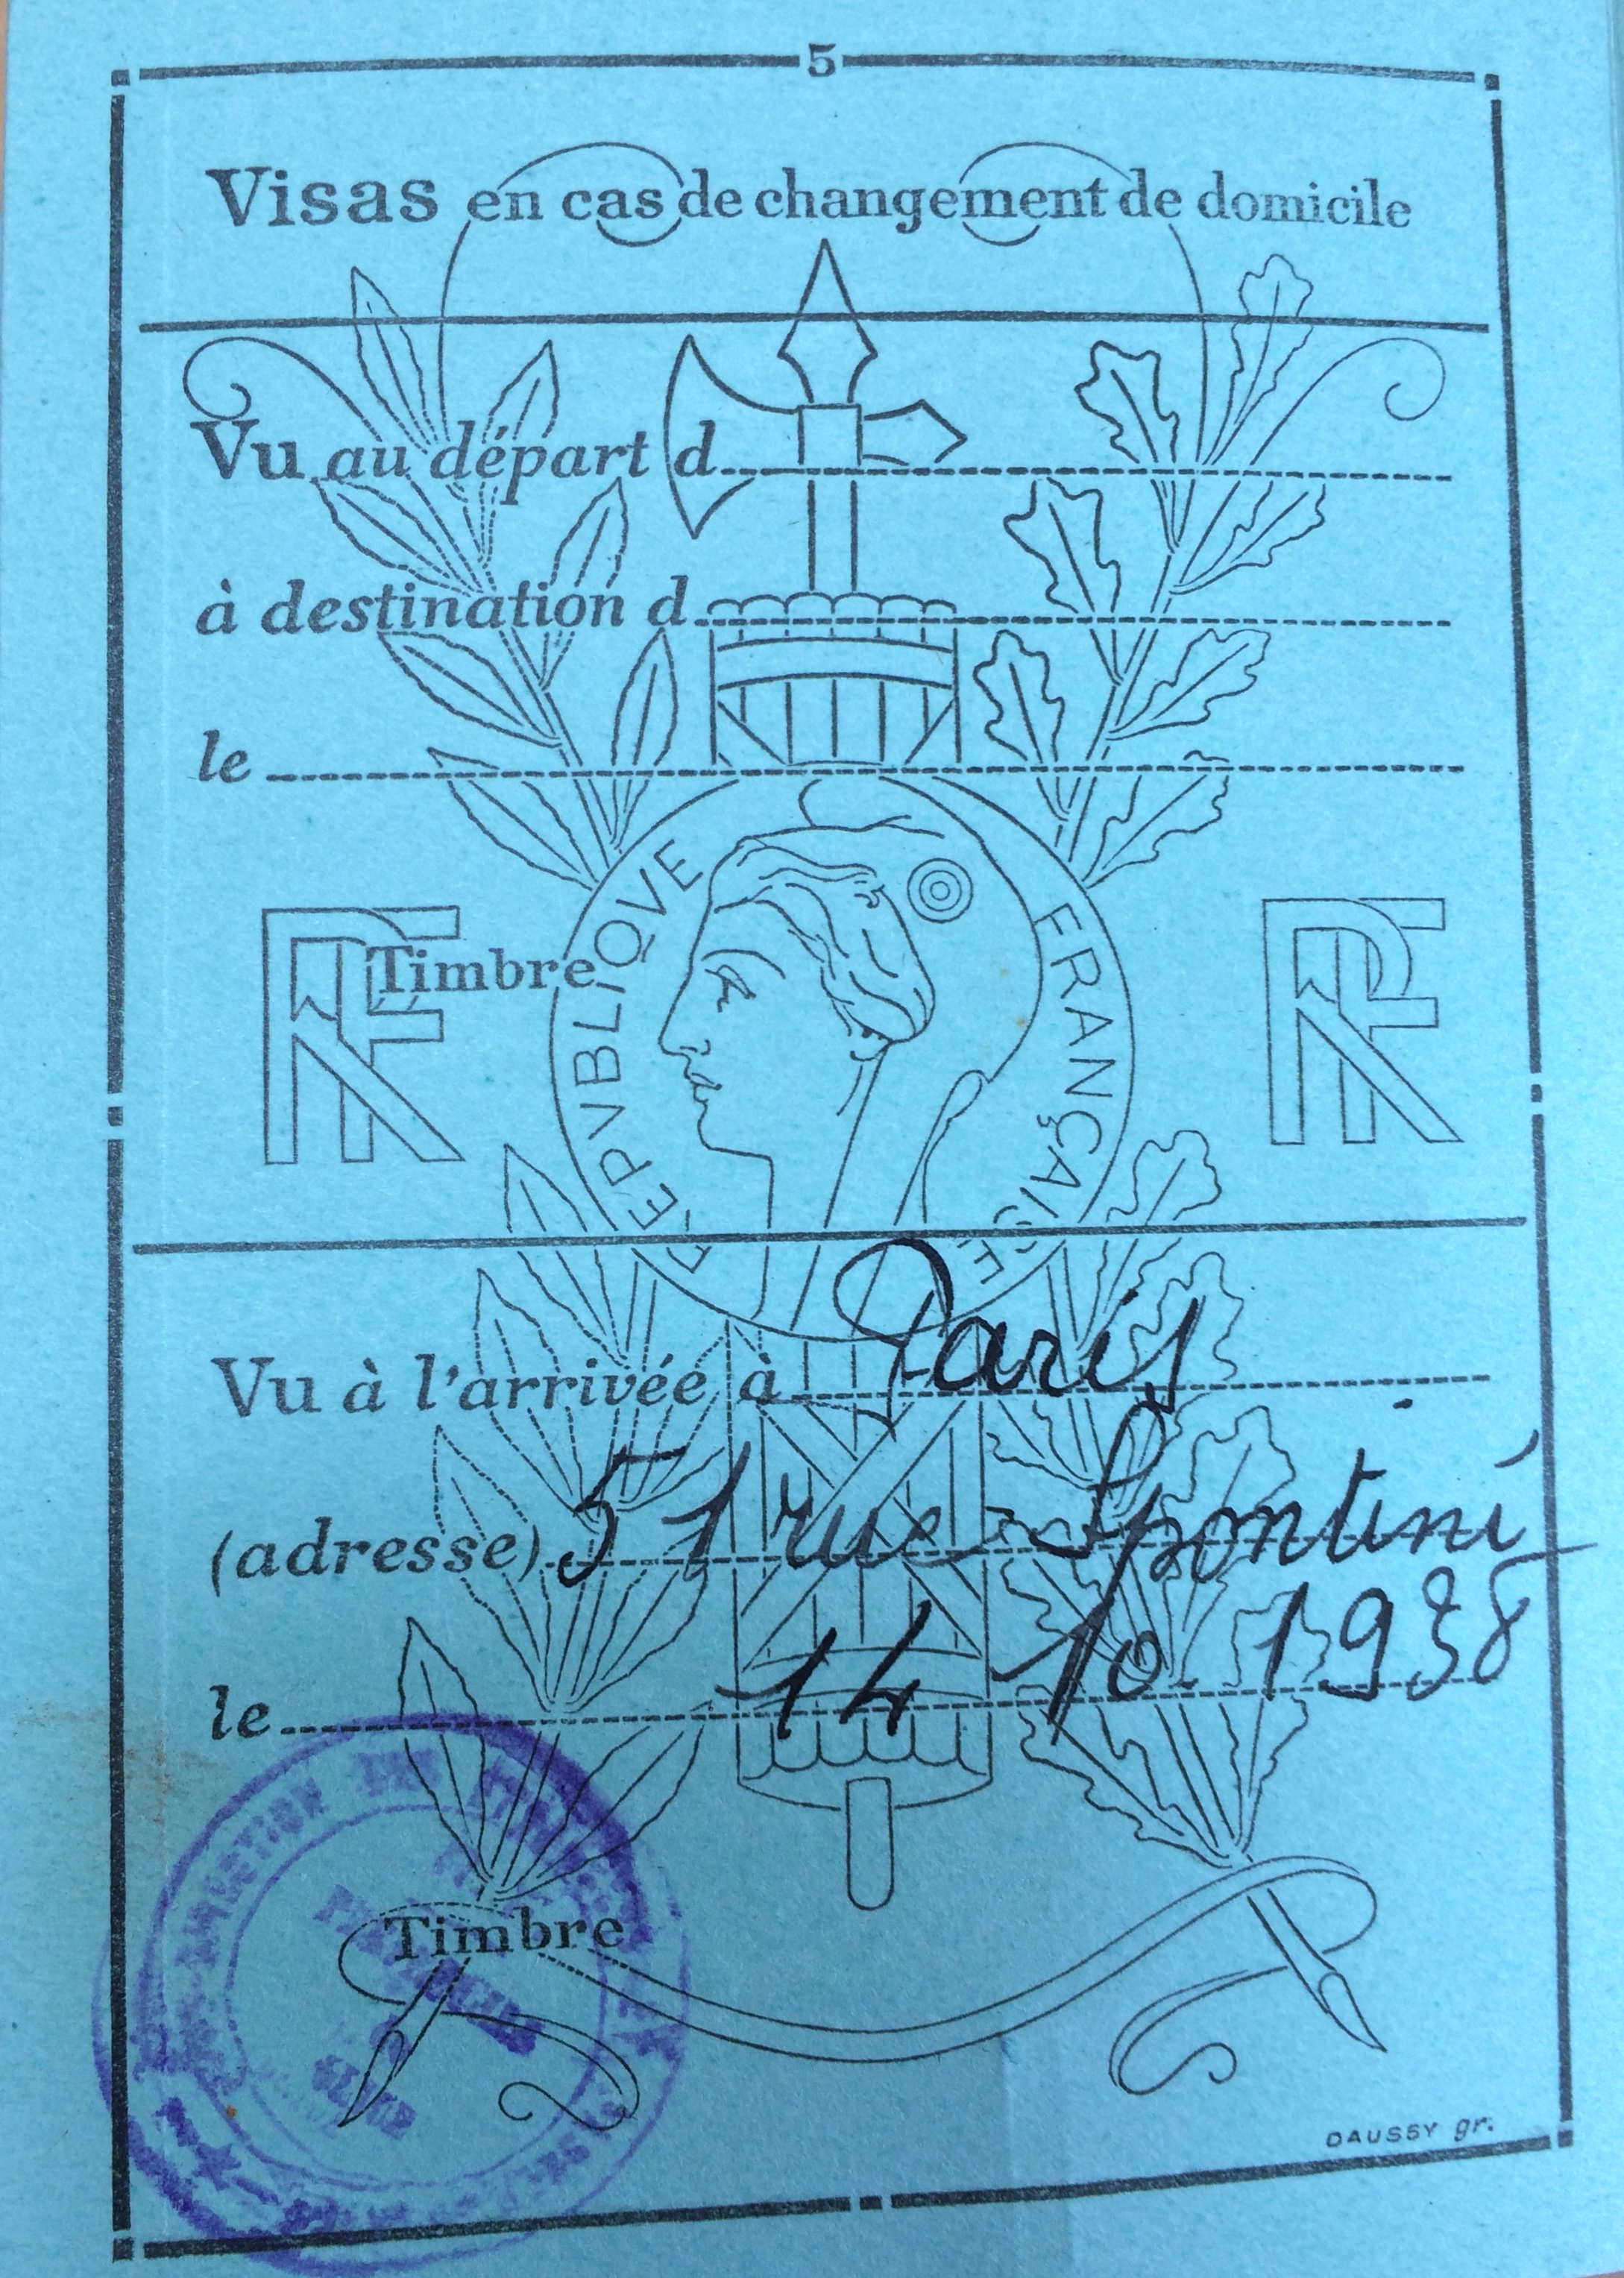 5
Visas en cas de changement de domicile
Vu au départ d
à destination d
le
RF
Timbre
RF
REPVBLIQVE FRANÇAISE
Vu à l'arrivée à Paris
(adresse) 51 rue Spontini
le 14 10. 1938
DIRECTION DES
Timbre
DAUSSY gr.